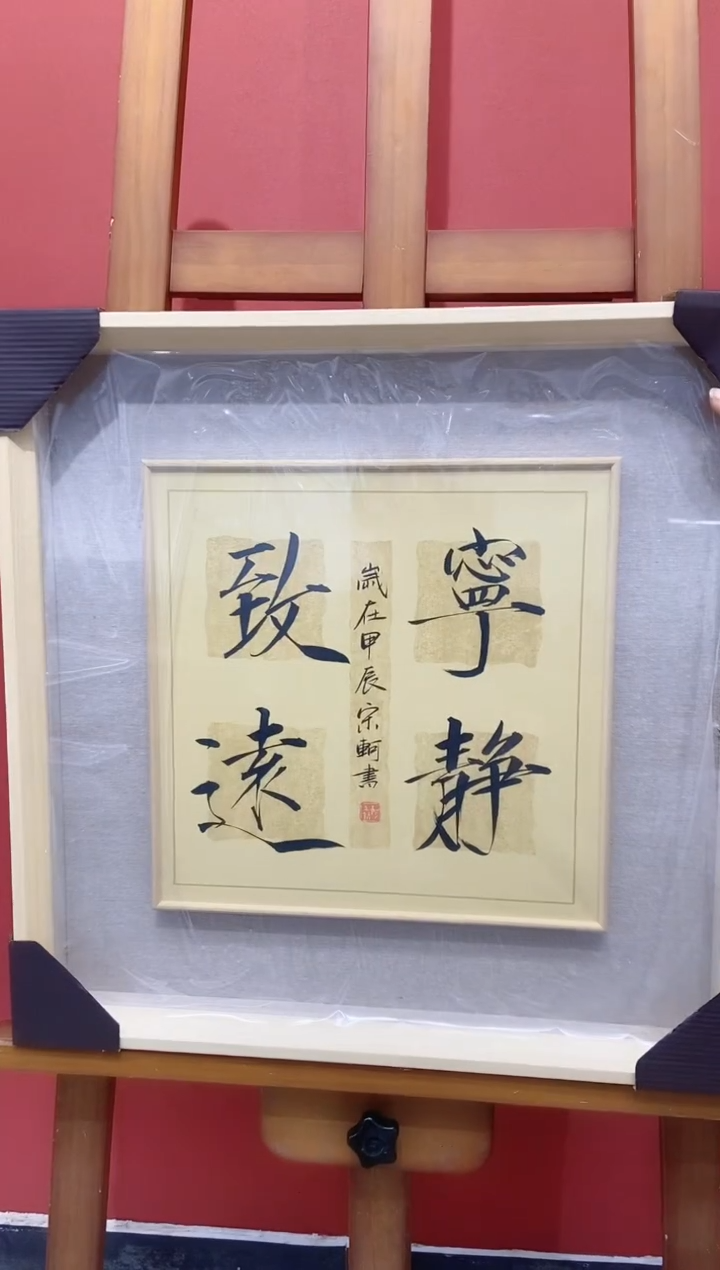 寧靜
致遠
歲在甲辰宗軻書